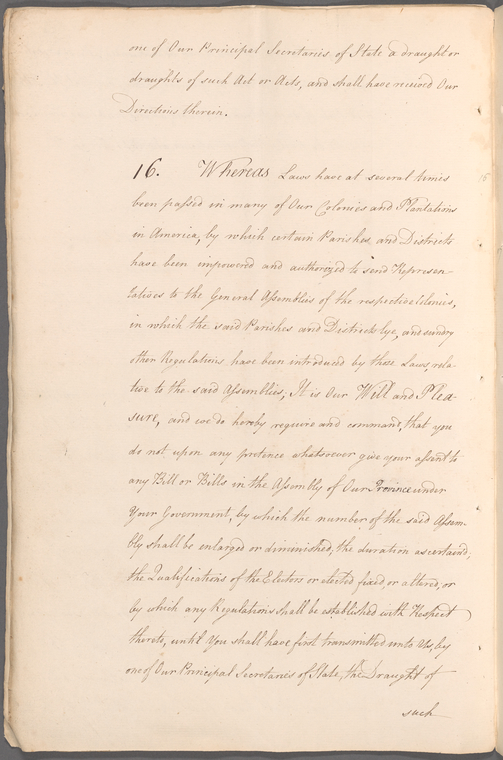 one of Our Principal Secretaries of State a draught or
draughts of such Act or Acts, and shall have received Our
Directions therein.
16. Whereas Laws have at several times
been passed in many of Our Colonies and Plantations
in America, by which certain Parishes and Districts
have been impowered and authorized to send Represen-
tatives to the General Assemblies of the respective Colonies,
in which the said Parishes and Districts lye, and sundry
other Regulations have been introduced by those Laws, rela-
tive to the said Assemblies; It is Our Will and Plea-
sure, and we do hereby require and command, that you
do not upon any pretence whatsoever give your assent to
any Bill or Bills in the Assembly of Our Province under
Your Government, by which the number of the said Assem-
bly shall be enlarged or diminished, the duration ascertained,
the Qualifications of the Electors or elected fixed, or altered, or
by which any Regulations shall be established with Respect
thereto, until You shall have first transmitted unto Us, by
one of Our Principal Secretaries of State, the Draught of
such